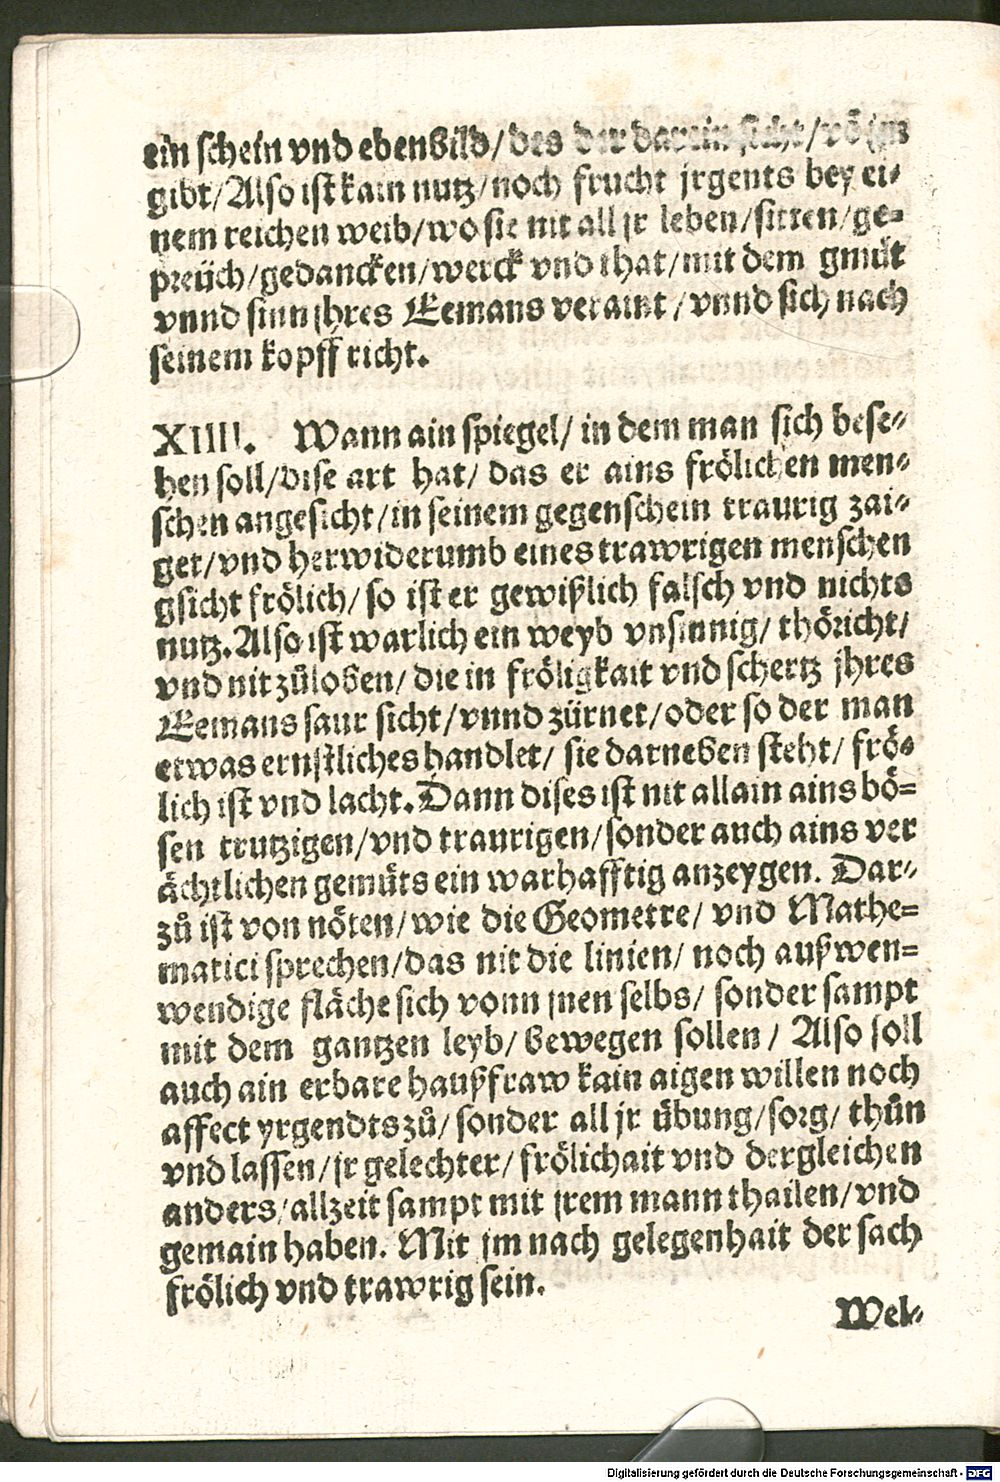 ein schein vnd ebenbild/des der darein sicht/võ jm
gibt/Also ist kain nutz/noch frucht jrgents bey ei-
nem reichen weib/wo sie nit all jr leben/sitten/ge-
preüch/gedancken/werck vnd that/mit dem gmüt
vnnd sinn jhres Eemans veraint/vnnd sich nach
seinem kopff richt.
XIIII. Wann ain spiegel/in dem man sich bese-
hen soll/dise art hat/das er ains frölichen men-
schen angesicht/in seinem gegenschein traurig zai-
get/vnd herwiderumb eines trawrigen menschen
gsicht frölich/so ist er gewißlich falsch vnd nichts
nutz.Also ist warlich ein weyb vnsinnig/thöricht/
vnd nit zůloben/die in fröligkait vnd schertz jhres
Eemans saur sicht/vnnd zürnet/oder so der man
etwas ernstliches handlet/sie darneben steht/frö-
lich ist vnd lacht.Dann dises ist nit allain ains bö-
sen trutzigen/vnd traurigen/sonder auch ains ver
ächtlichen gemüts ein warhafftig anzeygen. Dar-
zů ist von nöten/wie die Geometre/vnd Mathe-
matici sprechen/das nit die linien/noch außwen-
wendige fläche sich vonn jnen selbs/sonder sampt
mit dem gantzen leyb/bewegen sollen/Also soll
auch ain erbare haußfraw kain aigen willen noch
affect yrgendts zů/sonder all jr übung/sorg/thůn
vnd lassen/jr gelechter/frölichait vnd dergleichen
anders/allzeit sampt mit jrem mann thailen/vnd
gemain haben. Mit jm nach gelegenhait der sach
frölich vnd trawrig sein.
Wel-
Digitalisierung gefördert durch die Deutsche Forschungsgemeinschaft - DFG